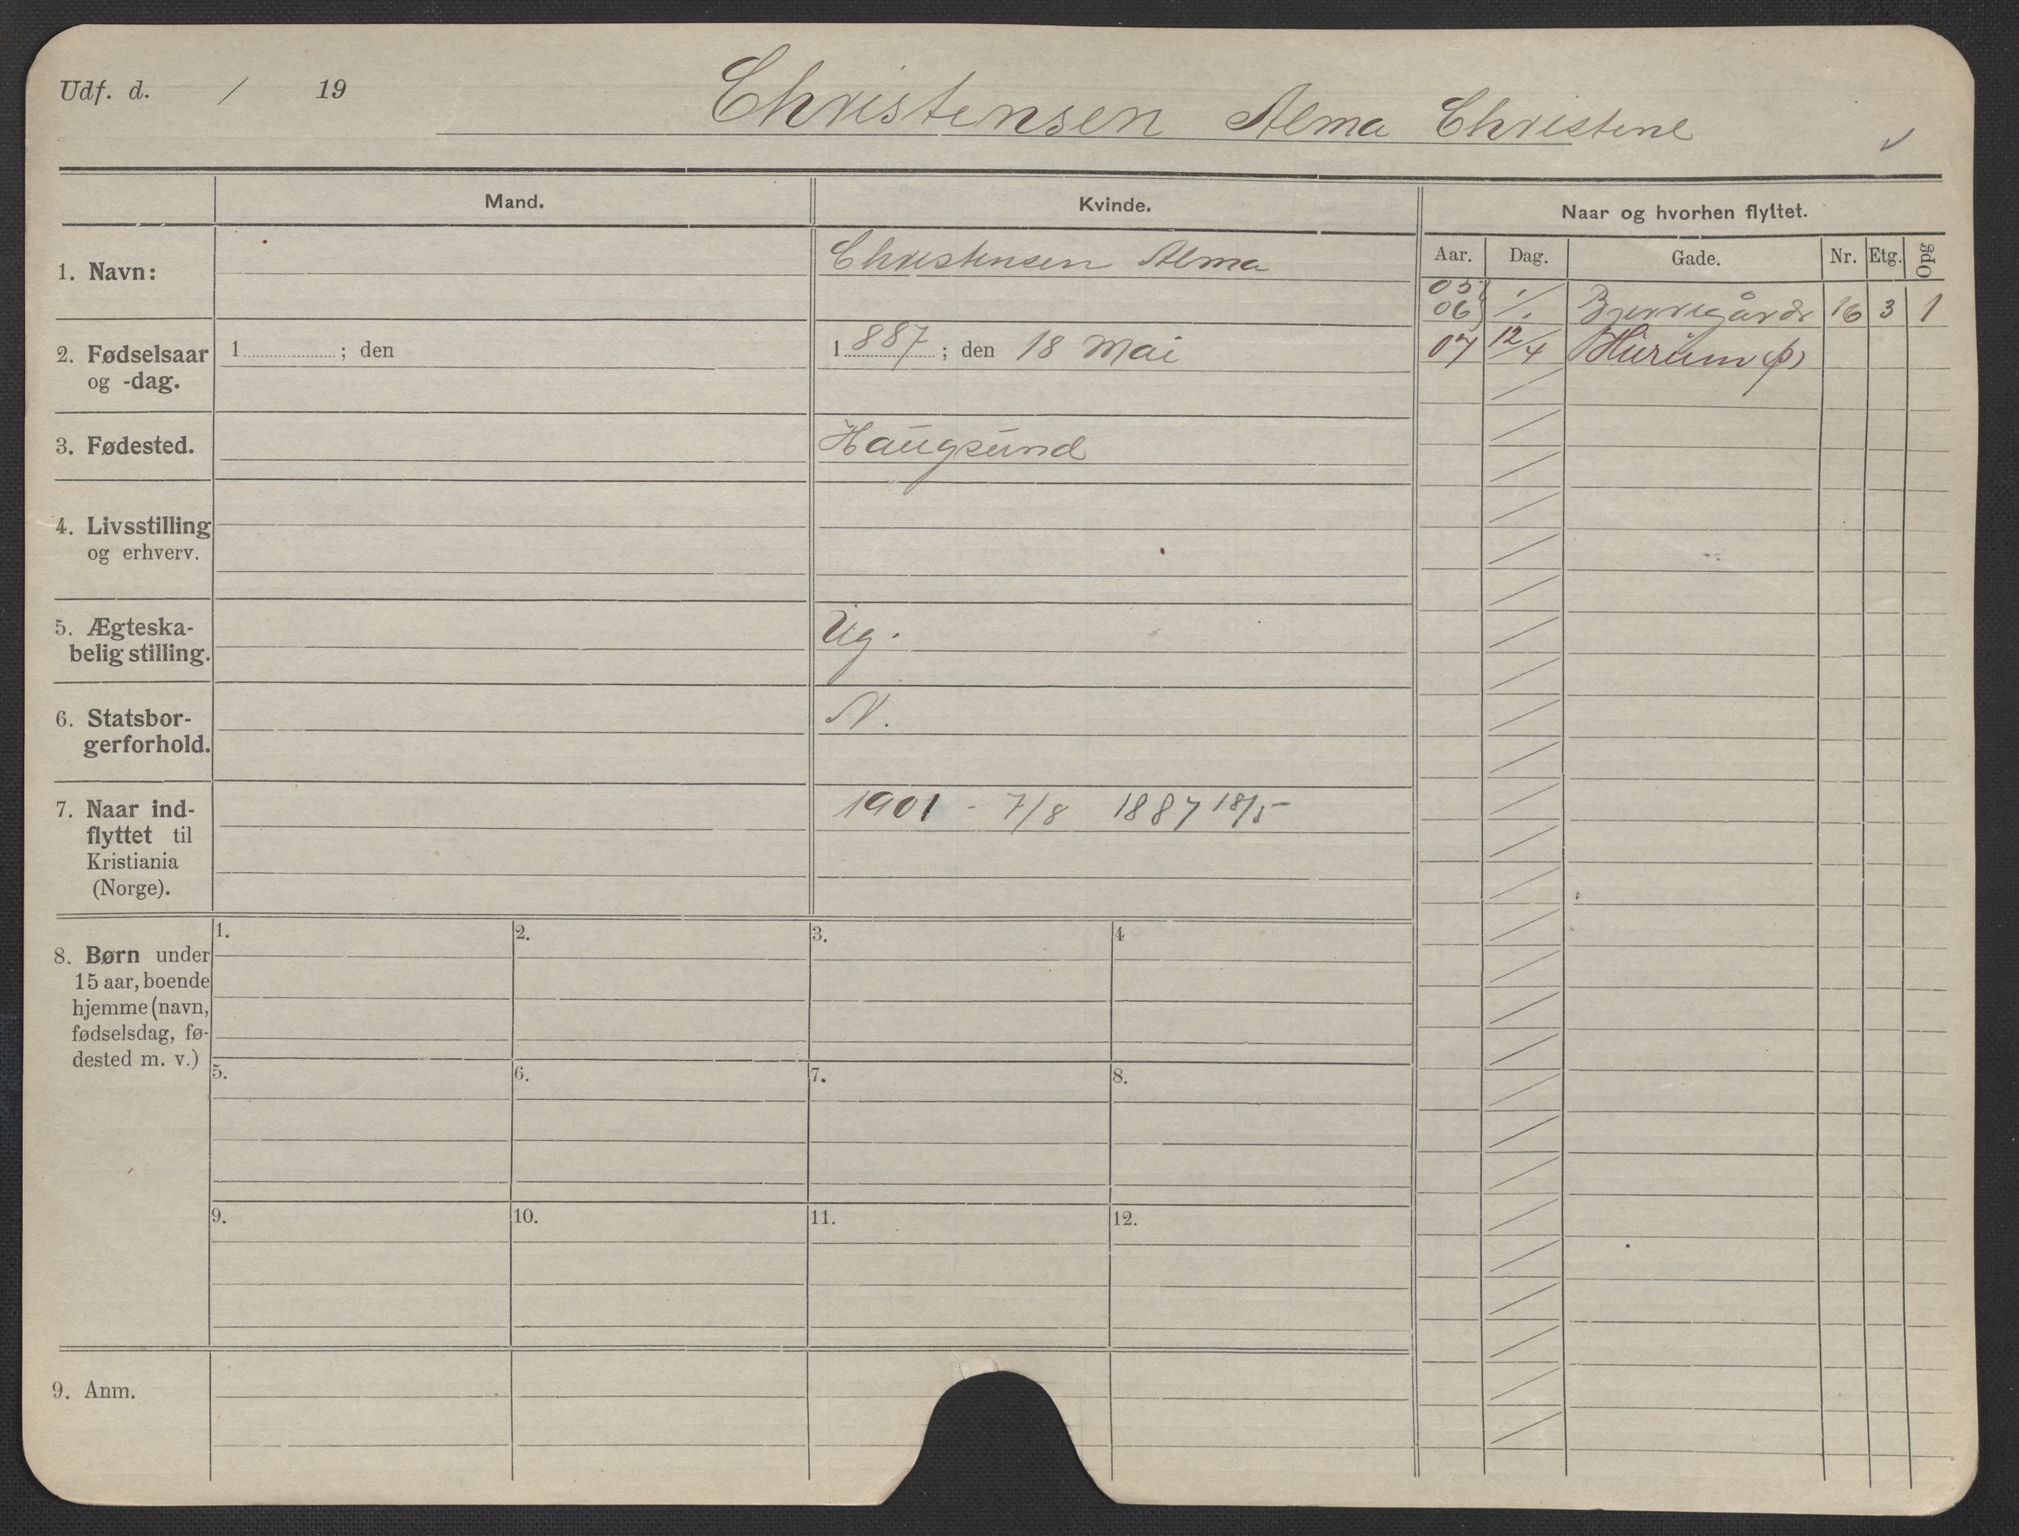 Udf. d. / 19
Christensen Alma Christine
Mand.
Kvinde.
Naar og hvorhen flyttet.
Aar. Dag. Gade. Nr. Etg. Opg
1. Navn: Christensen Alma
05
06 1/1 Bjerregårds 16 3 1
07 12/4 Hurum (p)
2. Fødselsaar 1 ; den 1887 ; den 18 Mai
og -dag.
3. Fødested. Haugsund
4. Livsstilling
og erhverv.
5. Ægteska- Ug.
belig stilling.
6. Statsbor- N.
gerforhold.
7. Naar ind- 1901 - 7/8 1887 18/5
flyttet til
Kristiania
(Norge).
8. Børn under
15 aar, boende
hjemme (navn,
fødselsdag, fø-
dested m. v.)
1. 2. 3. 4
5. 6. 7. 8.
9. 10. 11. 12.
9. Anm.